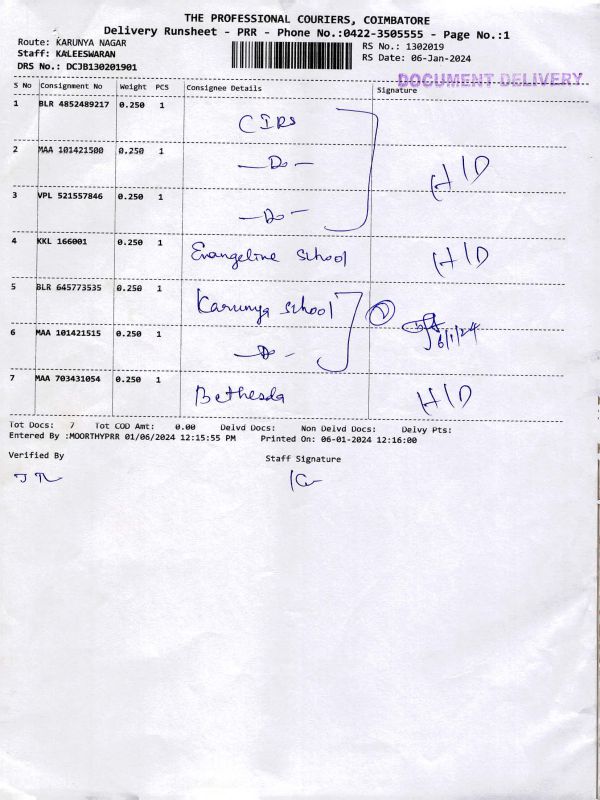 THE PROFESSIONAL COURIERS, COIMBATORE
Delivery Runsheet - PRR - Phone No.:0422-3505555 - Page No.:1
Route: KARUNYA NAGAR
RS No.: 1302019
Staff: KALEESWARAN
RS Date: 06-Jan-2024
DRS No.: DCJB130201901
DOCUMENT DELIVERY
S No Consignment No Weight PCS Consignee Details Signature
1 BLR 4852489217 0.250 1 CIRS
2 MAA 101421500 0.250 1 —Do— H/D
3 VPL 521557846 0.250 1 —Do—
4 KKL 166001 0.250 1 Evangeline School H/D
5 BLR 645773535 0.250 1 Karunya School 2
6 MAA 101421515 0.250 1 —Do— 6/1/24
7 MAA 703431054 0.250 1 Bethesda H/D
Tot Docs: 7 Tot COD Amt: 0.00 Delvd Docs: Non Delvd Docs: Delvy Pts:
Entered By :MOORTHYPRR 01/06/2024 12:15:55 PM Printed On: 06-01-2024 12:16:00
Verified By
Staff Signature